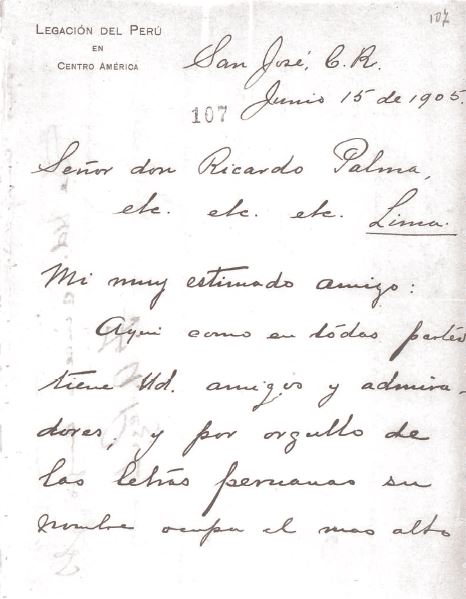 107
LEGACIÓN DEL PERÚ
EN
CENTRO AMÉRICA
San José, C. R.
Junio 15 de 1905.
107
Señor don Ricardo Palma,
etc. etc. etc. Lima.
Mi muy estimado amigo:
Aqui como en todas partes
tiene Ud. amigos y admira-
dores, y por orgullo de
las letras peruanas su
nombre ocupa el mas alto